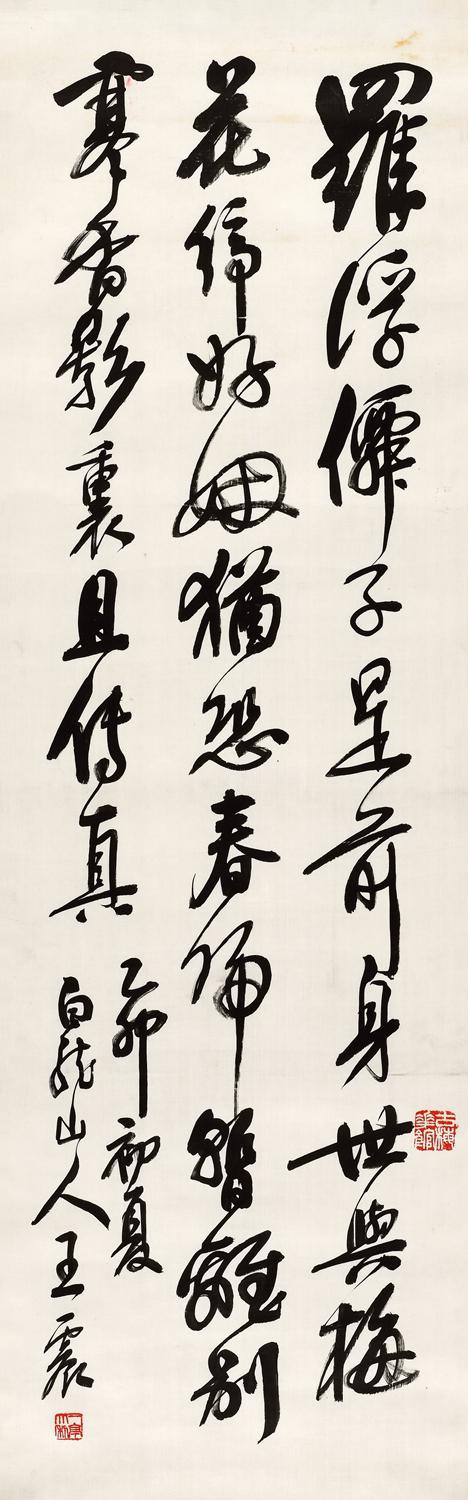 羅浮僊子是前身世與梅
花締好姻猶恐春歸暫離別
寒香影裏且傳真
乙卯初夏
白龍山人王震